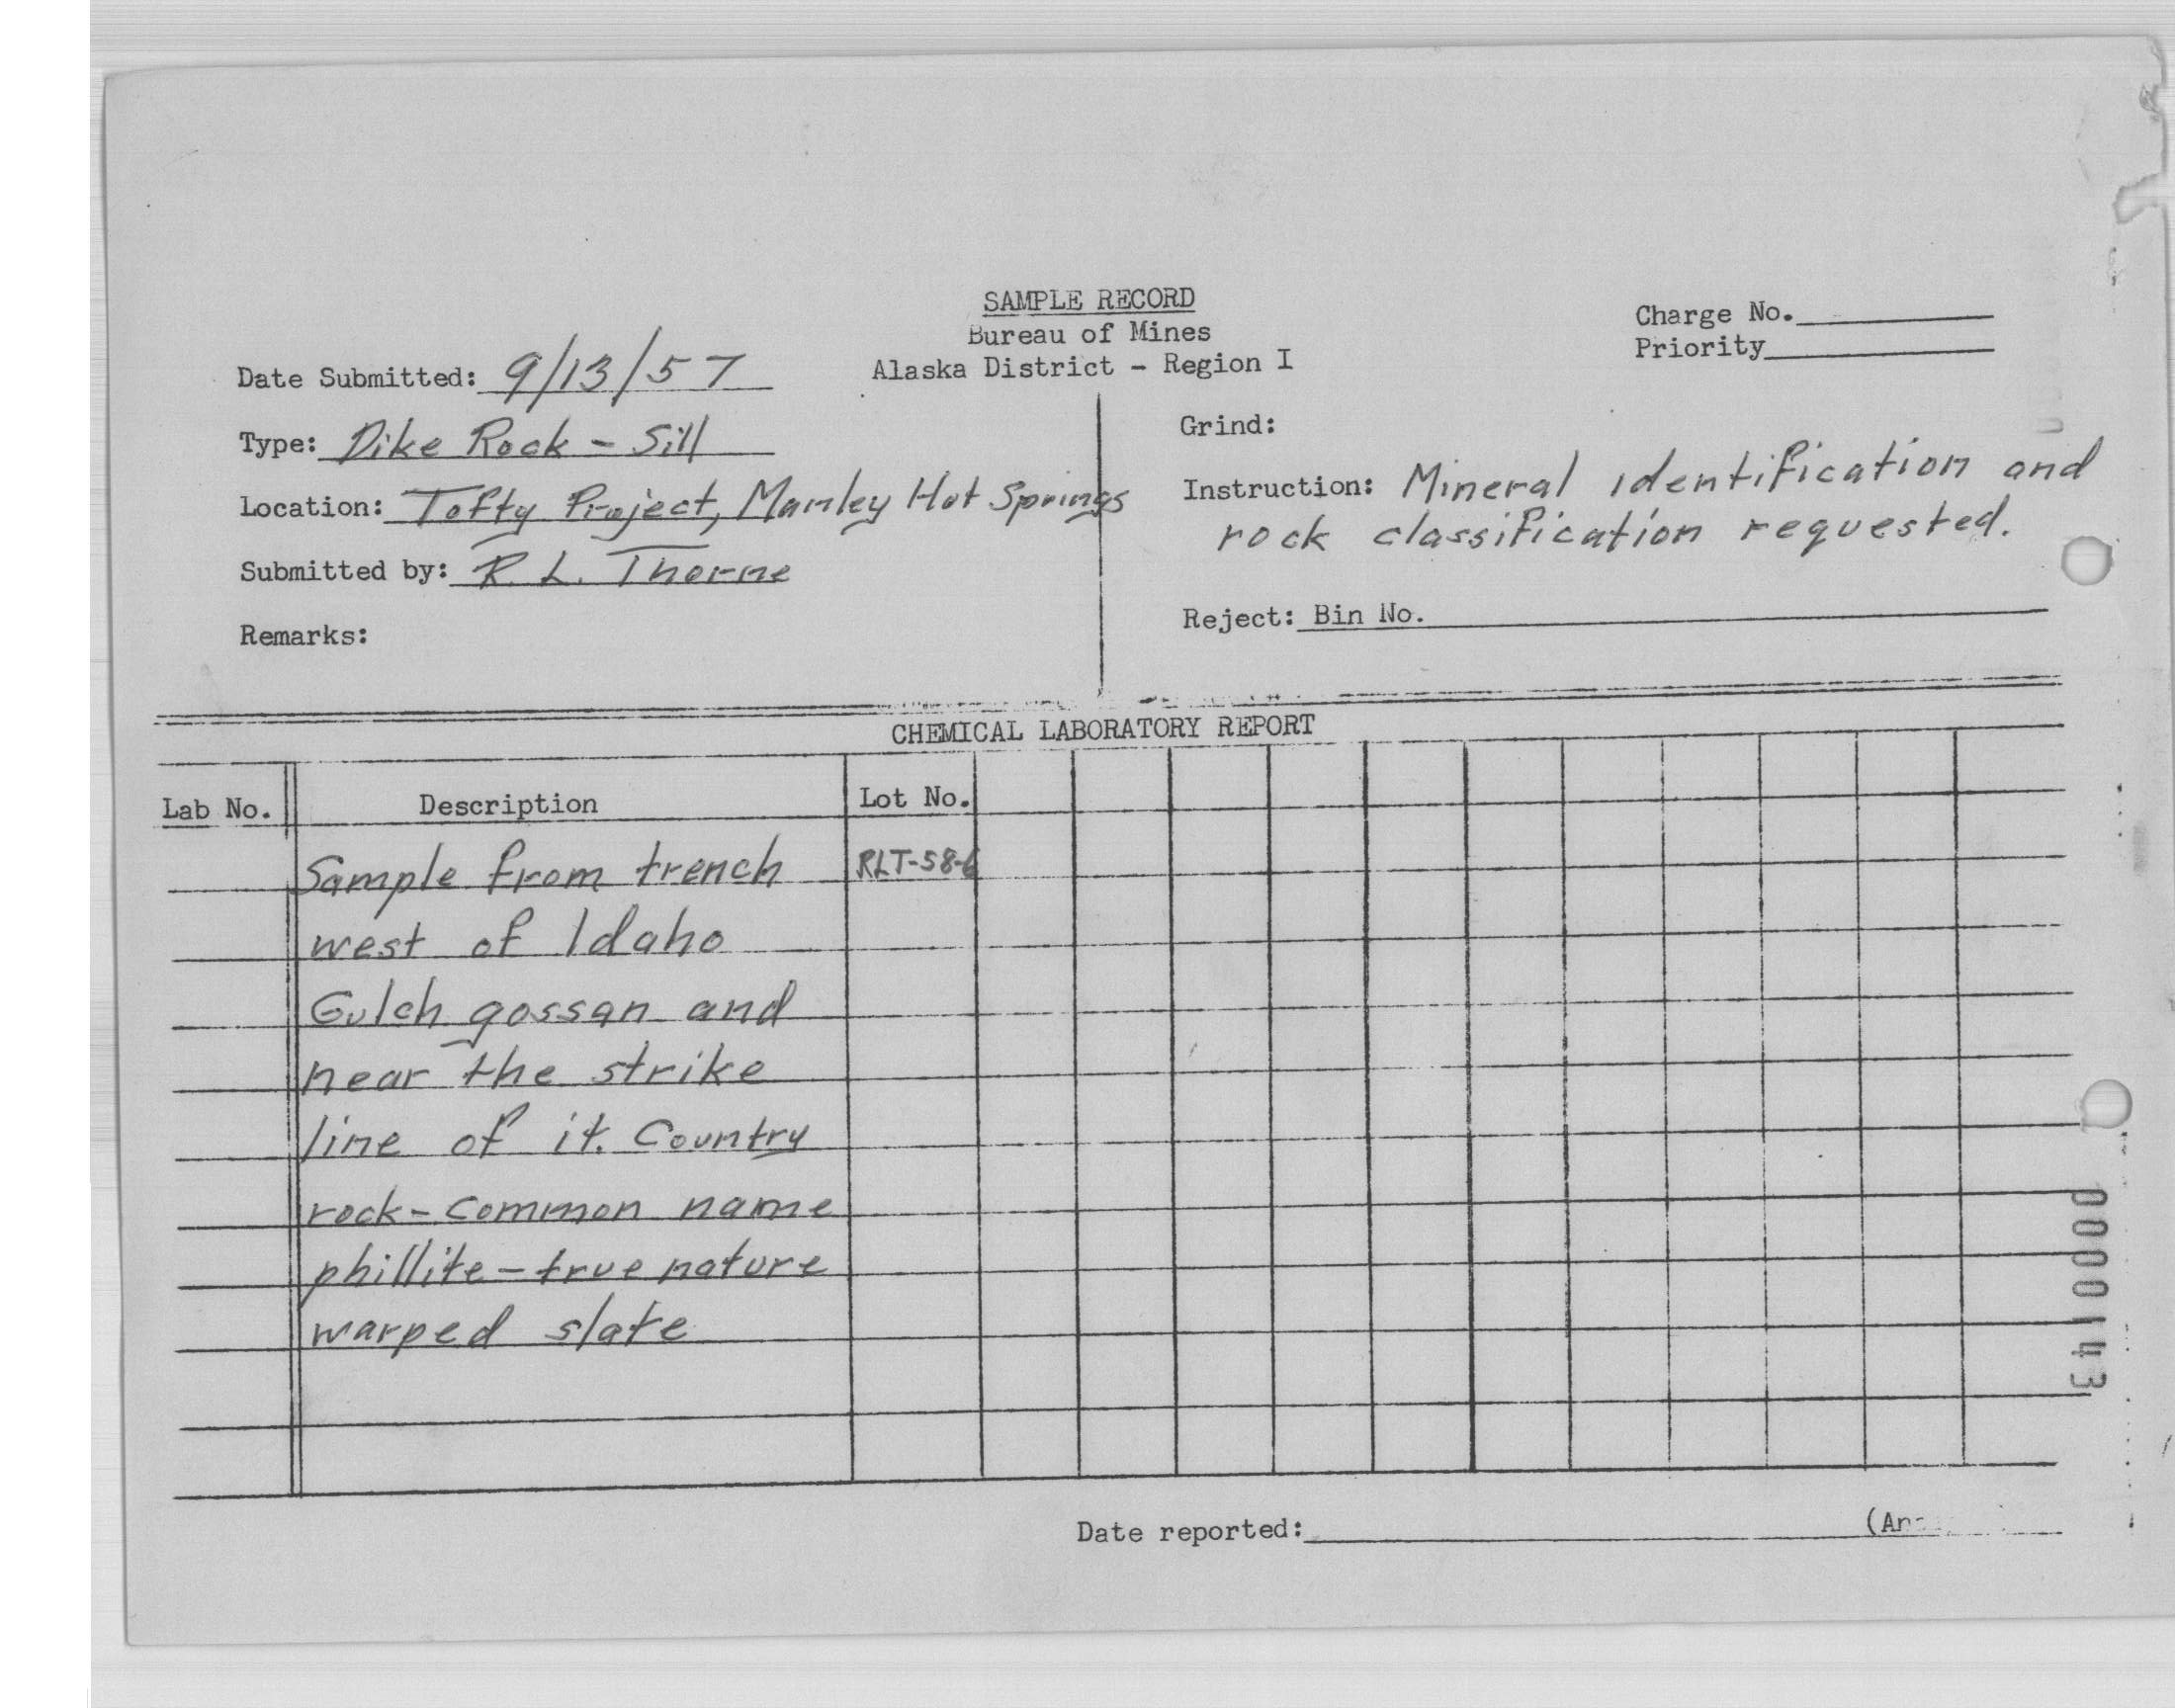 SAMPLE RECORD
Bureau of Mines
Alaska District - Region I
Charge No.
Priority
Date Submitted: 9/13/57
Type: Dike Rock - Sill
Location: Tofty Project, Manley Hot Springs
Submitted by: R. L. Thorne
Remarks:
Grind:
Instruction: Mineral identification and
rock classification requested.
Reject: Bin No.
CHEMICAL LABORATORY REPORT
Lab No. Description Lot No.
Sample from trench RLT-58-6
west of Idaho
Gulch gossan and
near the strike
line of it. Country
rock - common name
phillite - true nature
warped slate
Date reported:
0000143